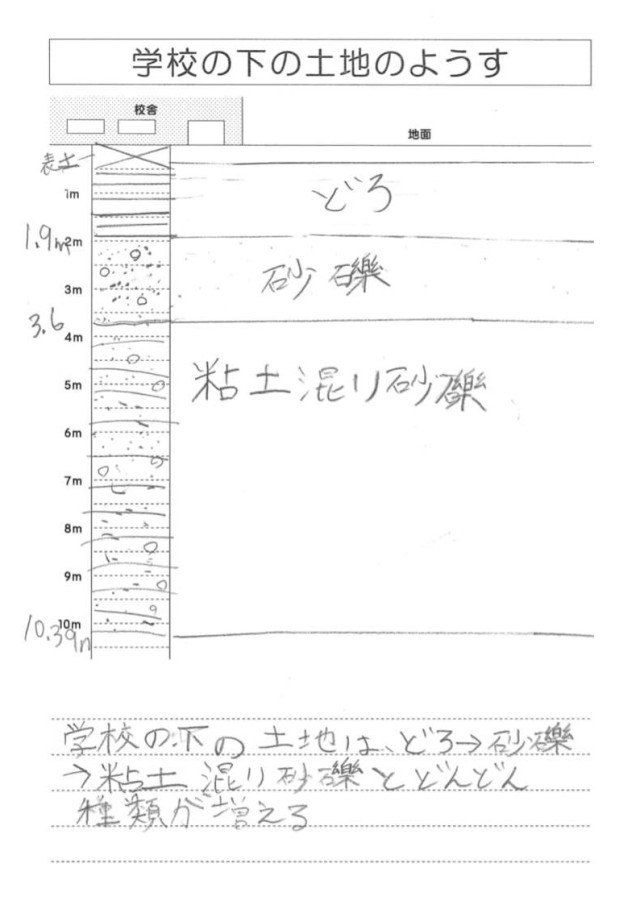 学校の下の土地のようす
校舎
地面
表土
1m
どろ
1.9m
2m
砂礫
3m
3.6
4m
粘土混り砂礫
5m
6m
7m
8m
9m
10m
10.39m
学校の下の土地は、どろ→砂礫
→粘土混り砂礫とどんどん
種類が増える